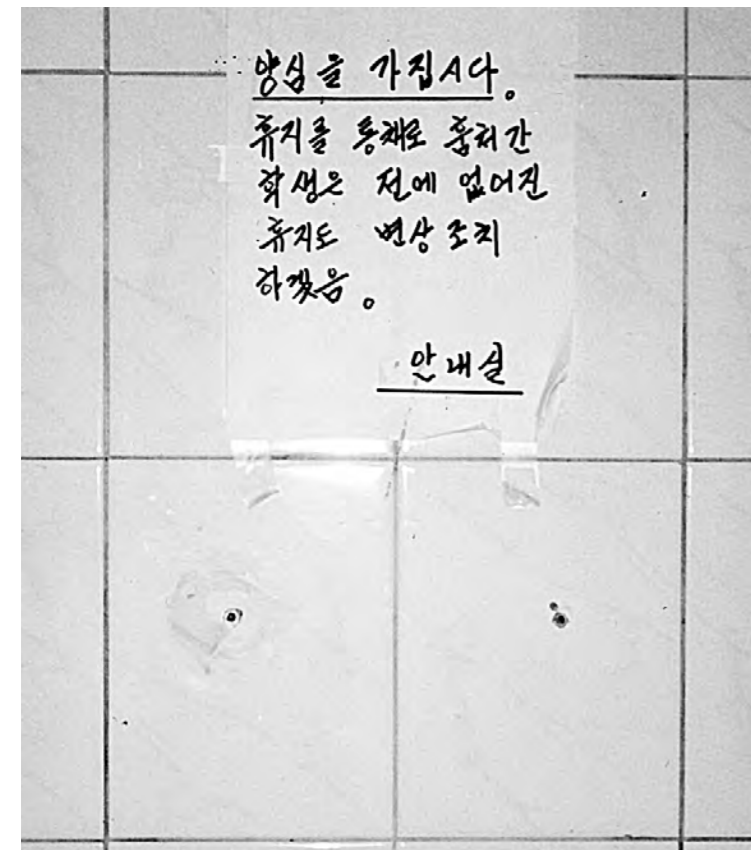 양심을 가집시다.
휴지를 통채로 훔쳐간
학생은 전에 없어진
휴지도 변상조치
하겠음.
안내실